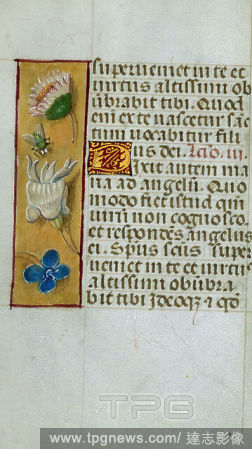 superveniet in te et
virtus altissimi ob
ubrabit tibi. Quod
eni ex te nascetur sāc
tum vocabitur fili
us dei. Lcō. iii.
Dixit autem ma
ria ad angelū. Quo
modo fiet istud qm̄
virū non cognosco.
et respondēs angelus
ei. Spūs scūs super
veniet in te et virtus
altissimi obūbra
bit tibi Ideoqz et qd
TPG
www.tpgnews.com/ 達志影像